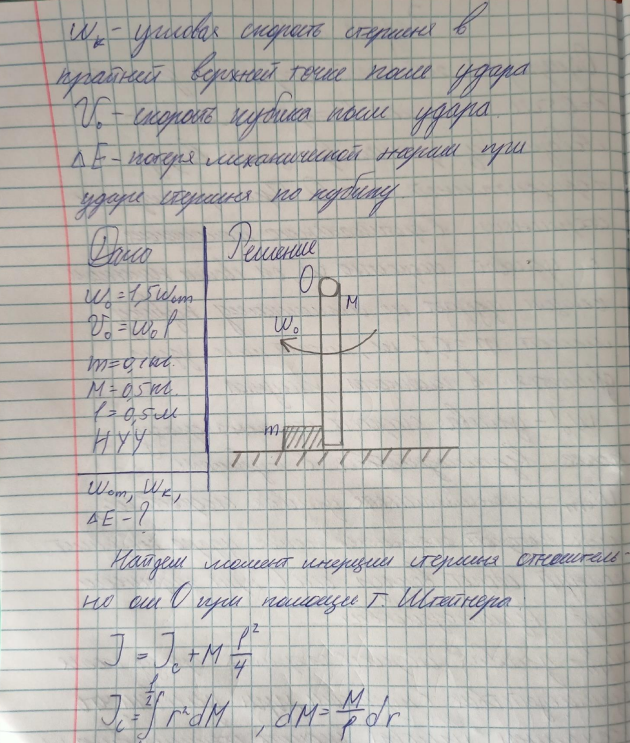 ω_к - угловая скорость стержня в
крайней верхней точке после удара
V_0 - скорость кубика после удара.
ΔE - потеря механической энергии при
ударе стержня по кубику
Дано
ω_0 = 1,5ω_от
V_0 = ω_0 l
m = 0,1кг.
M = 0,5кг.
l = 0,5м
НУУ
ω_от, ω_к,
ΔE - ?
Решение
O
M
ω_0
m
Найдем момент инерции стержня относитель-
но оси O при помощи т. Штейнера.
J = J_c + M l²/4
J_c = ∫^{l/2} r² dM , dM = M/l dr